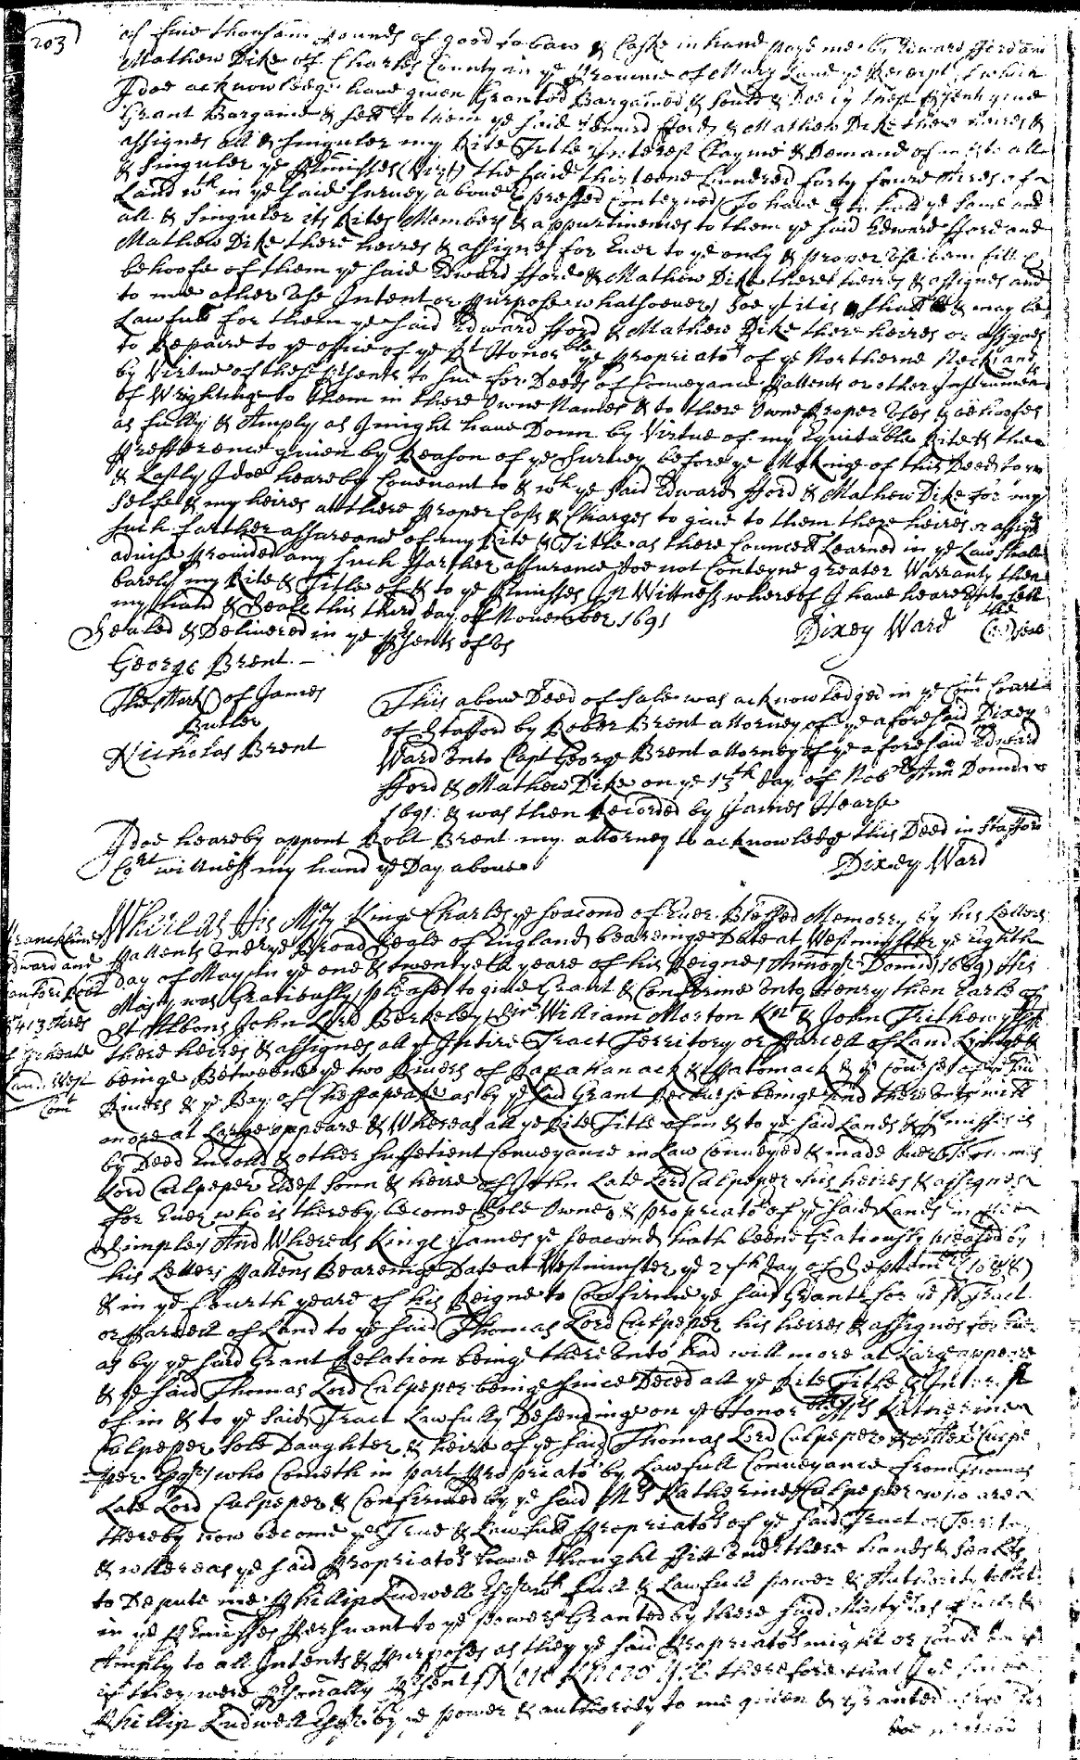 203
of five thousand pounds of good tobaco & Caske in hand payd me by Edward fford and
Mathew Dike of Charles County in ye Province of Mary Land ye Receipt which
I doe acknowledge have given Granted Bargained & sould & Doe by these psents give
Grant Bargaine & sell to them ye said Edward fford & Mathew Dike there heires &
assignes all & singuler my Rite Title Interest Clayme & Demand of in & to all
& singuler ye premisses (Vizt) the said thirteene hundred forty foure Acres of
Land wth in ye said survey above Expressed Conteyned To have & to hold ye same and
all & singuler its Rites Members & appurtinences to them ye said Edward fford and
Mathew Dike there heires & assignes for Ever to ye only & proper Use
behoofe of them ye said Edward fford & Mathew Dike there heires & assignes and
to noe other Use Intent or purpose whatsoever soe yt it is & shall & may be
Lawfull for them ye said Edward fford & Mathew Dike there heires or assignes
to Repaire to ye office of ye Rt Honorble ye propriators of ye Northerne Neck and
by Virtue of these psents to sue for Deeds of Conveyance pattents or other Instruments
of Wrightinge to them in there Owne Names & to there Owne proper Uses & behoofes
as fully & Amply as I might have Donn by Virtue of my Equitable Rite & the
prefference given by Reason of ye survey before ye Makinge of this Deed
& Lastly I doe heareby Covenant to & wth ye said Edward fford & Mathew Dike for my
selfe & my heires att there proper Costs & Charges to give to them there heires or assignes
such farther assurance of my Rite & Title as there Councell Learned in ye Law shall
advise provided any such farther assurance doe not Conteyne greater Warranty then
barely my Rite & Title of & to ye premisses In Wittness whereof I have heareunto sett
my hand & Seale this third day of November 1691
Sealed & Delivered in ye psents of us
Dixey Ward
George Brent
The Mark of James
Butler
Nicholas Brent
This above Deed of sale was acknowledged in ye Court
of Stafford by Robert Brent attorney of ye aforesaid Dixey
Ward Unto Capt George Brent attorney of ye aforesaid Edward
fford & Mathew Dike on ye 13th day of Nobr Anno Domini
1691 & was then Recorded by James Hearse
I doe heareby appont Robt Brent my attorney to acknowledge this Deed in Stafford
Cort wittness my hand ye Day above
Dixey Ward
Edward and
5413 Acres
Land
Whereas His Maty Kinge Charles ye seacond of Ever Blessed Memorry by his Letters
pattents Under ye Broad Seale of England beareinge Date at Westminster ye Eighth
day of May in ye one & twentyeth yeare of his Reigne Annoq Domini 1669 His
Maty was Gratiously pleased to give Grant & Confirme Unto Henry then Earle of
St Albons John Lord Berkeley Sir William Morton Knt & John Trithewy Esqr
there heires & assignes all yt Intire Tract Territory or parcell of Land Lyinge &
beinge Betweene ye two Rivers of Rapahanack & patomack & ye Courses of ye said
Rivers & ye Bay of Chessapeake as by ye said Grant Recourse beinge had there Unto will
more at Large appeare & Whereas all ye Rite Title of in & to ye said Lands & premisses is
by Deed Enrold & other suffetient Conveyance in Law Conveyed & made over to Thomas
Lord Culpeper Eldest sonn & heire of John Late Lord Culpeper his heires & assignes
for Ever who is thereby become Sole Owner & propriator of ye said Lands in ffee
Simple And Whereas Kinge James ye seacond hath beene Gratiously pleased by
his Letters pattens Beareinge Date at Westminster ye 27th day of Septembr (1688)
& in ye fourth yeare of his Reigne to Confirme ye said Grant for ye sd Tract
or parcell of Land to ye said Thomas Lord Culpeper his heires & assignes for Ever
as by ye said Grant Relation beinge there Unto had will more at Large appeare
& ye said Thomas Lord Culpeper beinge since Deced all ye Rite Title & Interest
of in & to ye said Tract Lawfully Desendinge on ye Honorble Mrs Katherine
Culpeper sole Daughter & heire of ye said Thomas Lord Culpeper & Allex Culpe
per Esqr who Cometh in part propriator by Lawfull Conveyance from Thomas
Late Lord Culpeper & Confirmed by ye said Mrs Katherine Culpeper who are
thereby now become ye True & Lawfull propriators of ye said Tract or Territory
& whereas ye said propriators have thought fitt Under there hands & seales
to Depute me Phillip Ludwell Esqr with full & Lawfull power & Authority to act
in ye premisses pershuant to ye powers Granted by there said Matys as fully &
Amply to all Intents & purposes as they ye said propriators might or could doe
if they were psonally psent Now Know Yee therefore that I ye said
Phillip Ludwell Esqr by ye power & authority to me given & Granted